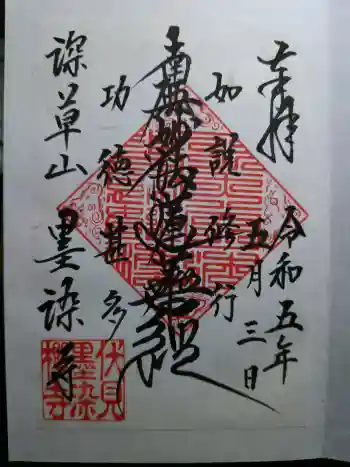 奉拝
令和五年
五月三日
如説修行
南無妙法蓮華経
功徳甚多
深草山
墨染寺
伏見
墨染
桜寺